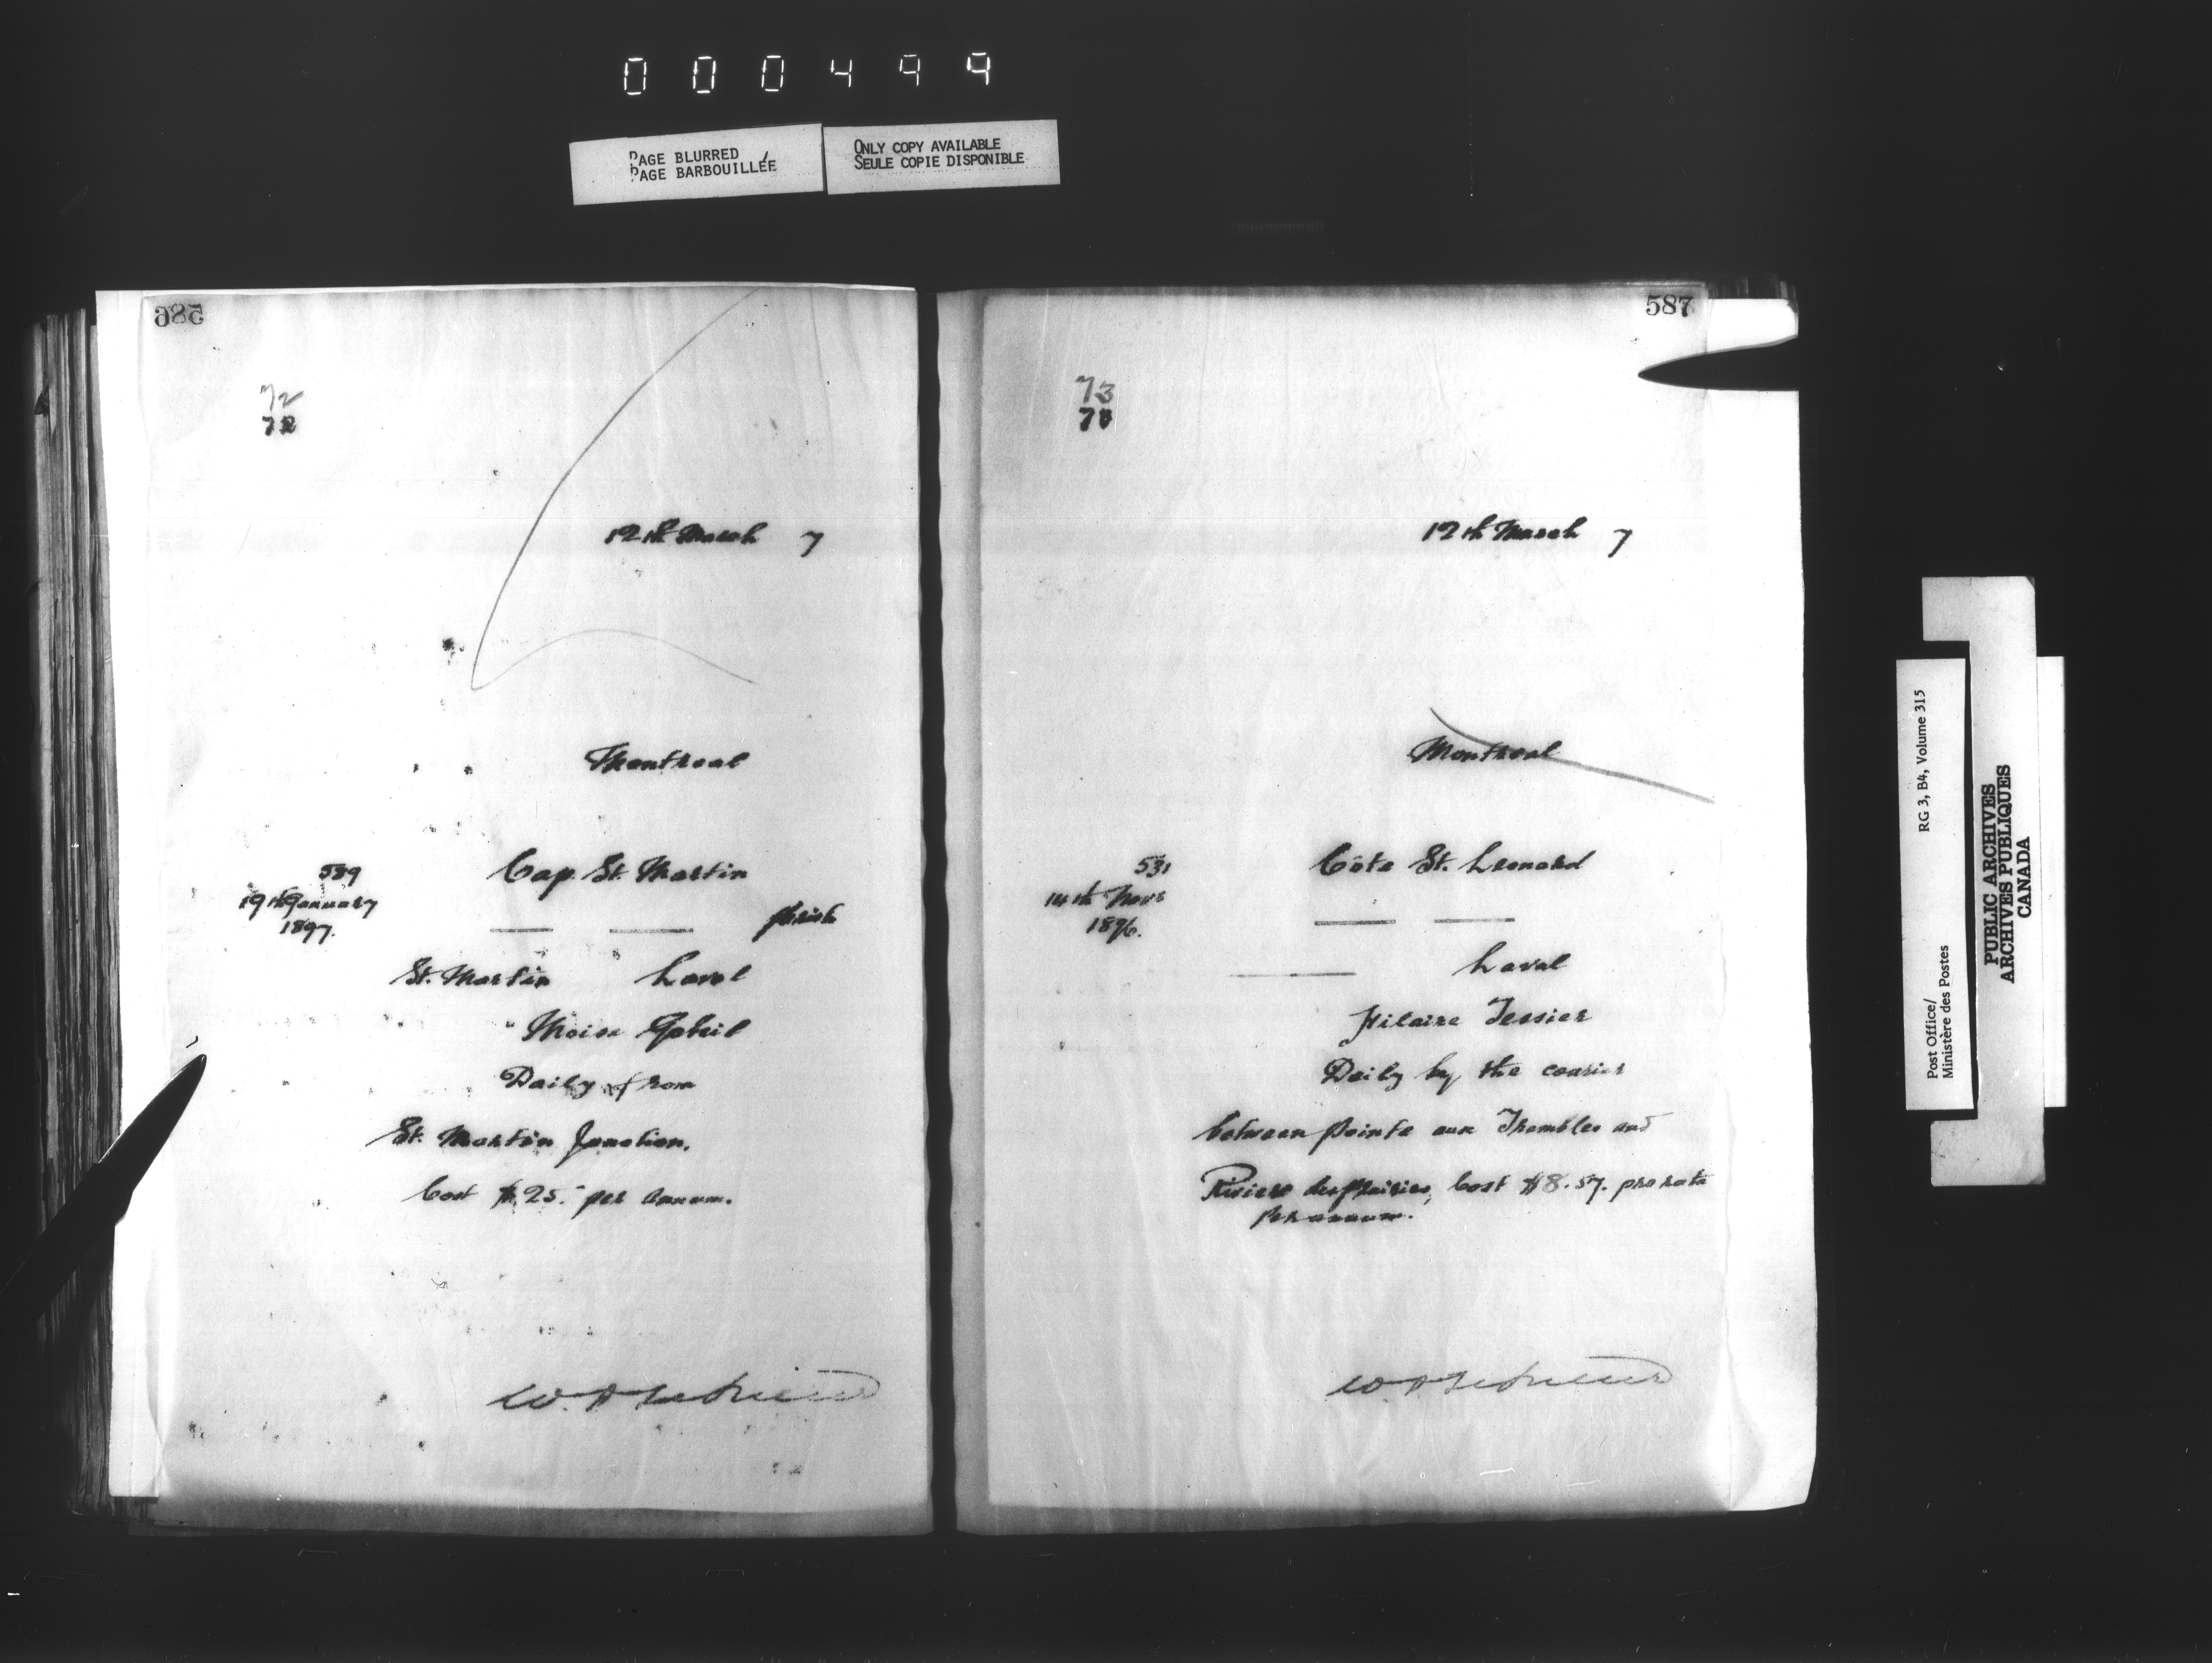 000499
PAGE BLURRED
PAGE BARBOUILLÉE
ONLY COPY AVAILABLE
SEULE COPIE DISPONIBLE
586
72
72
12th March 7
Montreal
589
Cap. St. Martin
19th January
1897.
parish
St. Martin Laval
Moise
Daily from
St. Martin Junction.
Cost $25.- per annum.
587
73
12th March 7
Montreal
531
Côte St. Leonard
14th Novr
1896.
Laval
Hilaire Tessier
Daily by the courier
between Pointe aux Trembles and
Riviere des Prairies, Cost $8.57. pro rata
per annum.
Post Office/
Ministère des Postes
RG 3, B4, Volume 315
PUBLIC ARCHIVES
ARCHIVES PUBLIQUES
CANADA